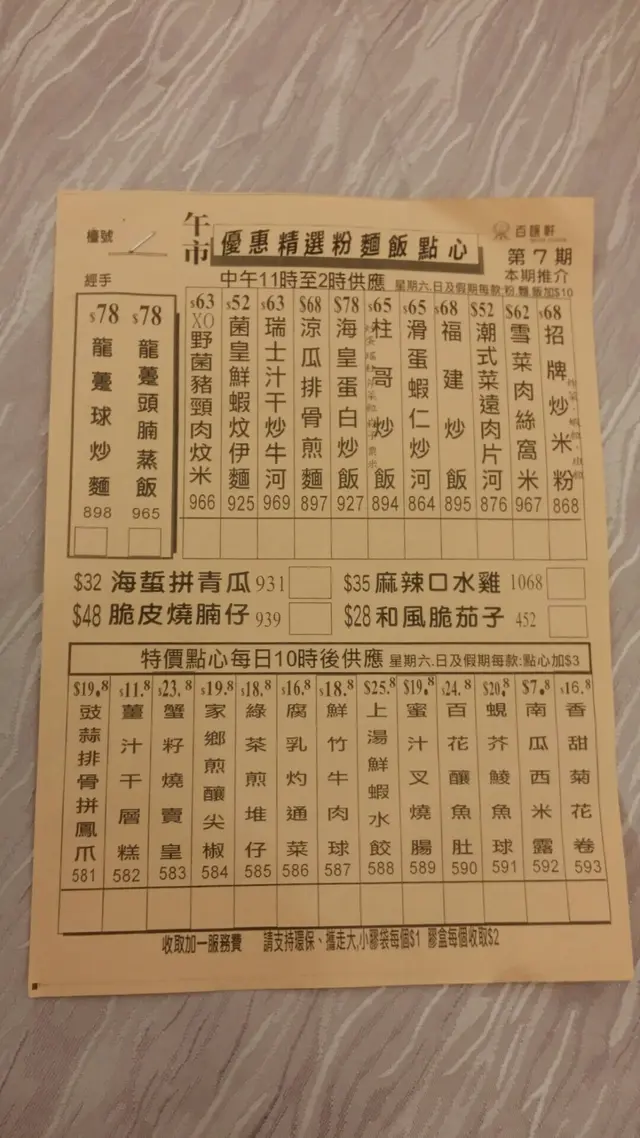 檯號 2
午市 優惠精選粉麵飯點心
百匯軒
第7期
本期推介
經手
中午11時至2時供應 星期六.日及假期每款:粉.麵.飯加$10
$78 龍躉球炒麵 898
$78 龍躉頭腩蒸飯 965
$63 XO野菌豬頸肉炆米 966
$52 菌皇鮮蝦炆伊麵 925
$63 瑞士汁干炒牛河 969
$68 涼瓜排骨煎麵 897
$78 海皇蛋白炒飯 927
$65 柱哥炒飯 894
$65 滑蛋蝦仁炒河 864
$68 福建炒飯 895
$52 潮式菜遠肉片河 876
$62 雪菜肉絲窩米 967
$68 招牌炒米粉 868
$32 海蜇拼青瓜 931
$35 麻辣口水雞 1068
$48 脆皮燒腩仔 939
$28 和風脆茄子 452
特價點心每日10時後供應 星期六.日及假期每款:點心加$3
$19.8 豉蒜排骨拼鳳爪 581
$11.8 薑汁千層糕 582
$23.8 蟹籽燒賣皇 583
$19.8 家鄉煎釀尖椒 584
$18.8 綠茶煎堆仔 585
$16.8 腐乳灼通菜 586
$18.8 鮮竹牛肉球 587
$25.8 上湯鮮蝦水餃 588
$19.8 蜜汁叉燒腸 589
$24.8 百花釀魚肚 590
$20.8 蜆芥鯪魚球 591
$7.8 南瓜西米露 592
$16.8 香甜菊花卷 593
收取加一服務費 請支持環保、攜走大,小膠袋每個$1 膠盒每個收取$2